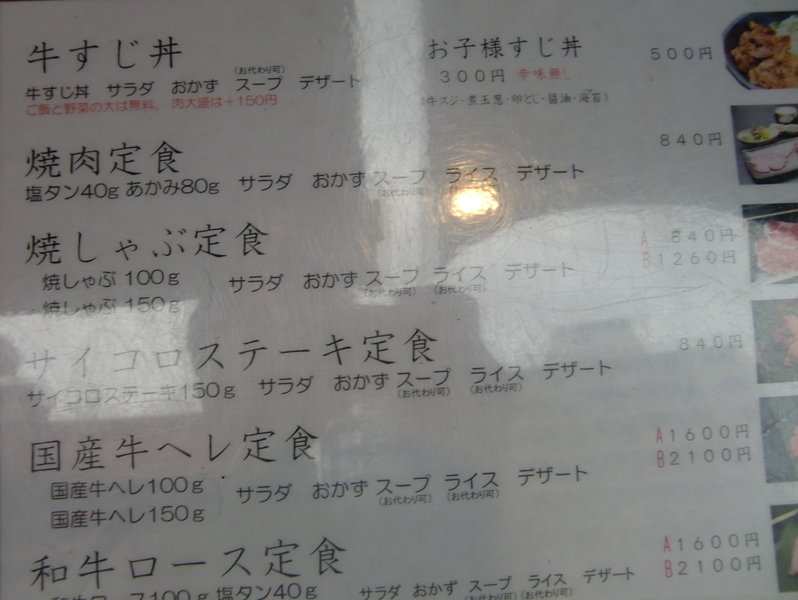 牛すじ丼 お子様すじ丼 500円
(お代わり可) 300円 辛味無し
牛すじ丼 サラダ おかず スープ デザート
ご飯と野菜の大は無料、肉大盛は+150円 (牛スジ・煮玉葱・卵とじ・醤油・海苔)
焼肉定食 840円
塩タン40g あかみ80g サラダ おかず スープ ライス デザート
(お代わり可) (お代わり可)
焼しゃぶ定食 A 840円
焼しゃぶ 100g サラダ おかず スープ ライス デザート B1260円
焼しゃぶ 150g (お代わり可) (お代わり可)
サイコロステーキ定食 840円
サイコロステーキ150g サラダ おかず スープ ライス デザート
(お代わり可) (お代わり可)
国産牛ヘレ定食 A1600円
国産牛ヘレ100g サラダ おかず スープ ライス デザート B2100円
国産牛ヘレ150g (お代わり可) (お代わり可)
和牛ロース定食 A1600円
和牛ロース100g 塩タン40g サラダ おかず スープ ライス デザート B2100円
(お代わり可) (お代わり可)